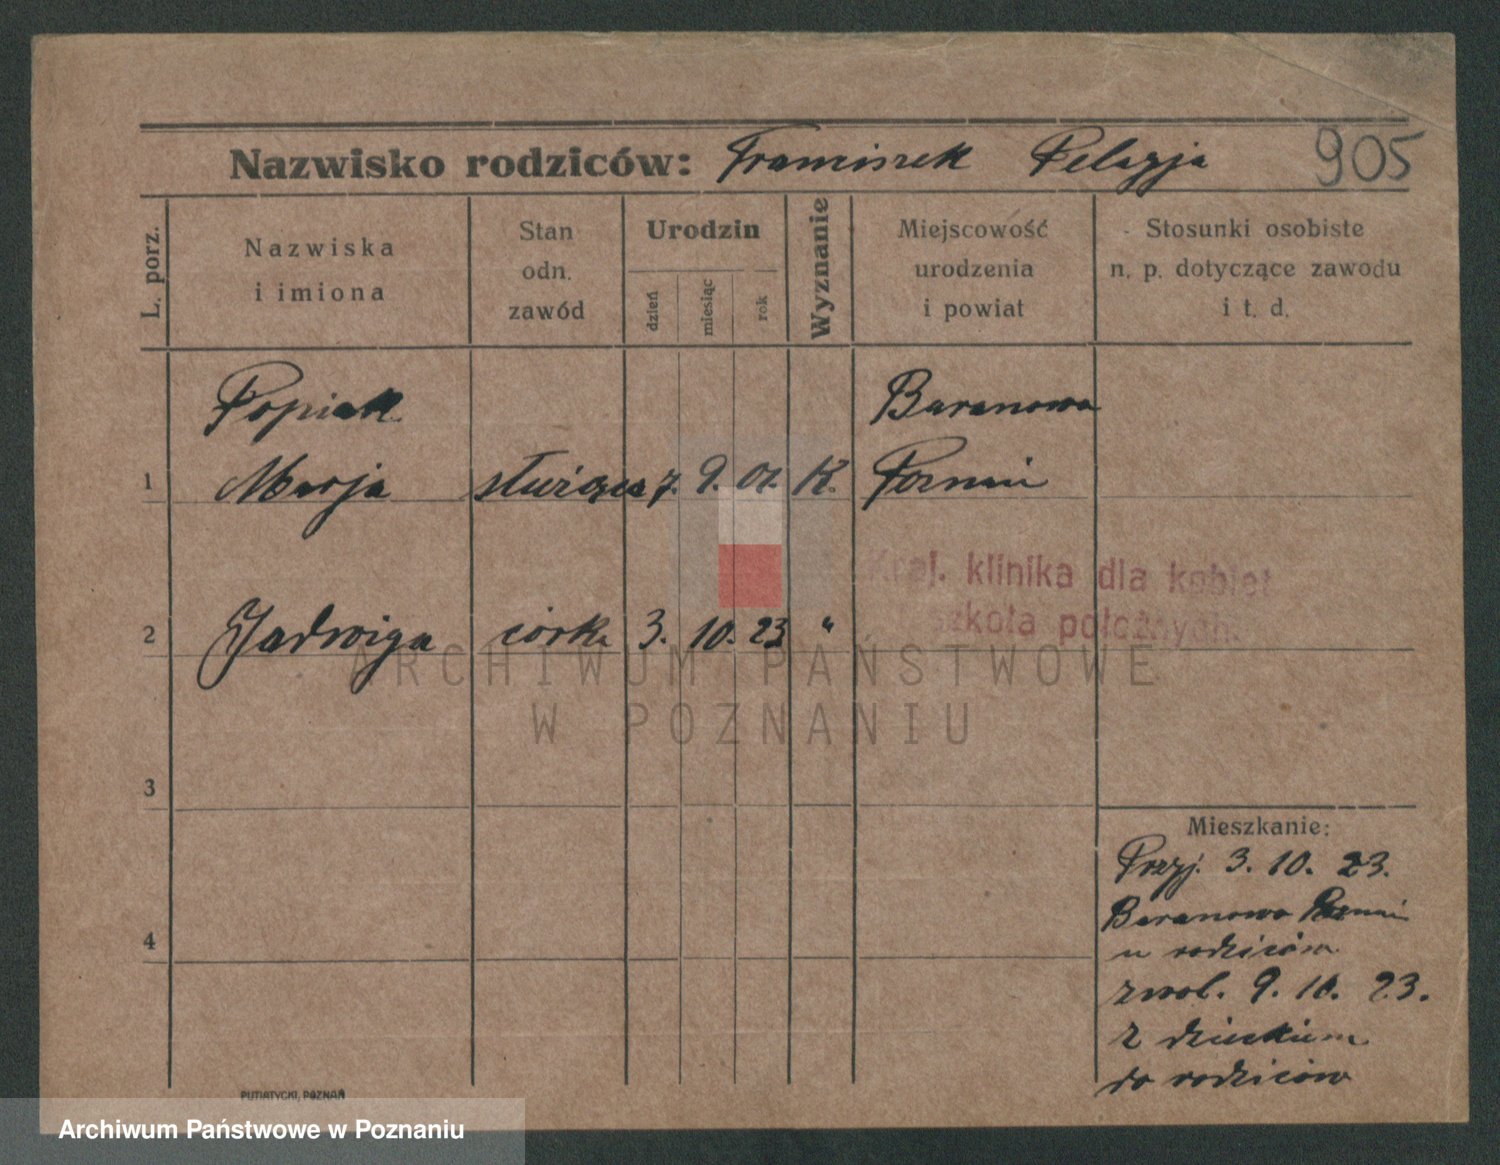 Nazwisko rodziców: Franciszek Pelagja 905
L. porz.
Nazwiska
i imiona
Stan
odn.
zawód
Urodzin
dzień
miesiąc
rok
Wyznanie
Miejscowość
urodzenia
i powiat
Stosunki osobiste
n. p. dotyczące zawodu
i t. d.
Popiak Baranowo
1 Marja służąca 7. 9. 01. K. Poznań
Kraj. klinika dla kobiet
szkoła położnych.
2 Jadwiga córka 3. 10. 23 "
ARCHIWUM PAŃSTWOWE
W POZNANIU
3
Mieszkanie:
Przyj. 3. 10. 23.
Baranowo Poznań
u rodziców
zwol. 9. 10. 23.
z dzieckiem
do rodziców
4
PUTIATYCKI, POZNAŃ
Archiwum Państwowe w Poznaniu